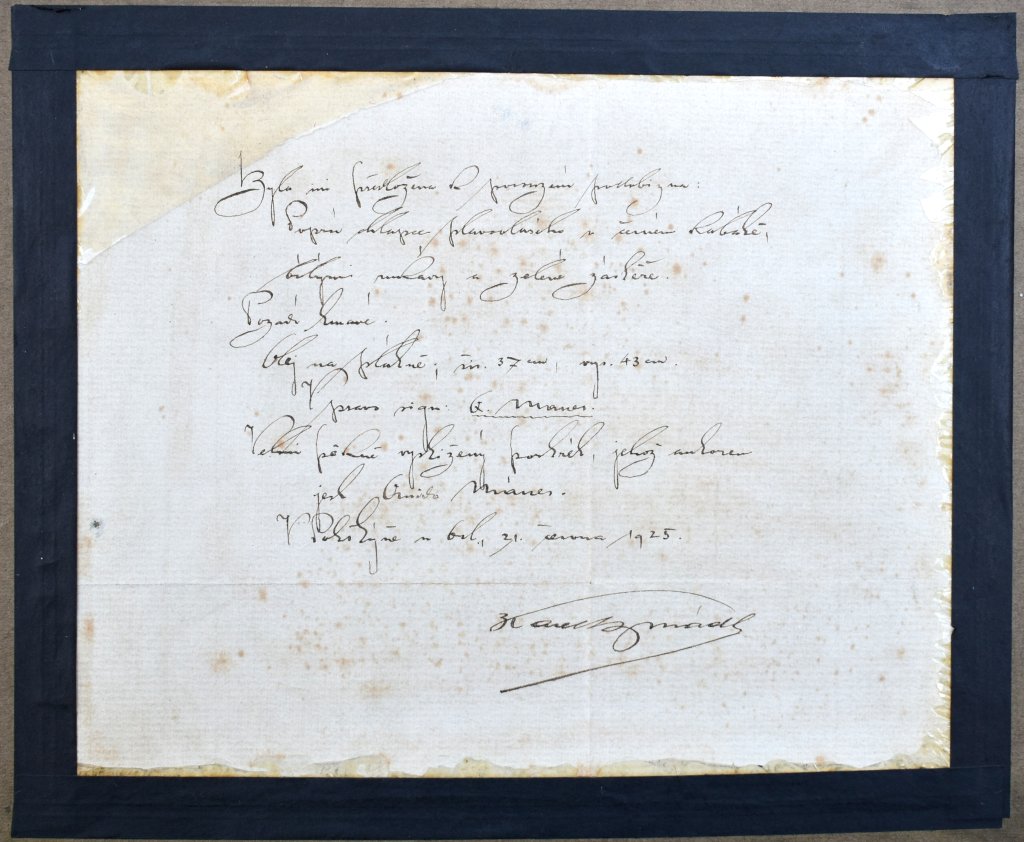 Byla mi předložena k posouzení podobizna:
Poprsí chlapce plavovlasého v černém kabátě,
bílými rukávy a zelené zástěře.
Pozadí tmavé.
Olej na plátně; šír. 37 cm, výš. 43 cm.
V pravo sign. Q. Manes.
Velmi pěkně vystižený portrét, jehož autorem
jest Quido Mánes.
V Potštýně n Orl., 21. června 1925.
Karel B. Mádl